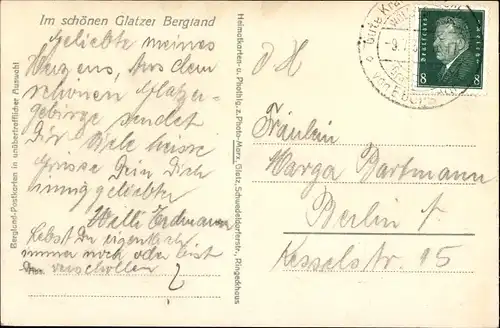 Im schönen Glatzer Bergland
Geliebte meines
Herzens, Aus dem
schönen Glatzer-
gebirge sendet
Dir viele heisse
Grüsse Dein Dich
innig geliebter
Willi Erdmann
Lebst Du eigentlich
immer noch oder bist
verschollen?
Bergland-Postkarten in unübertrefflicher Auswahl
Heimatkarten- u. Phothlg. z. Photo-Marx, Glatz, Schwedeldorferstr., Ringeckhaus
Deutsches Reich
8 8
Fräulein
Marga Dartmann
Berlin
Kesselstr. 15